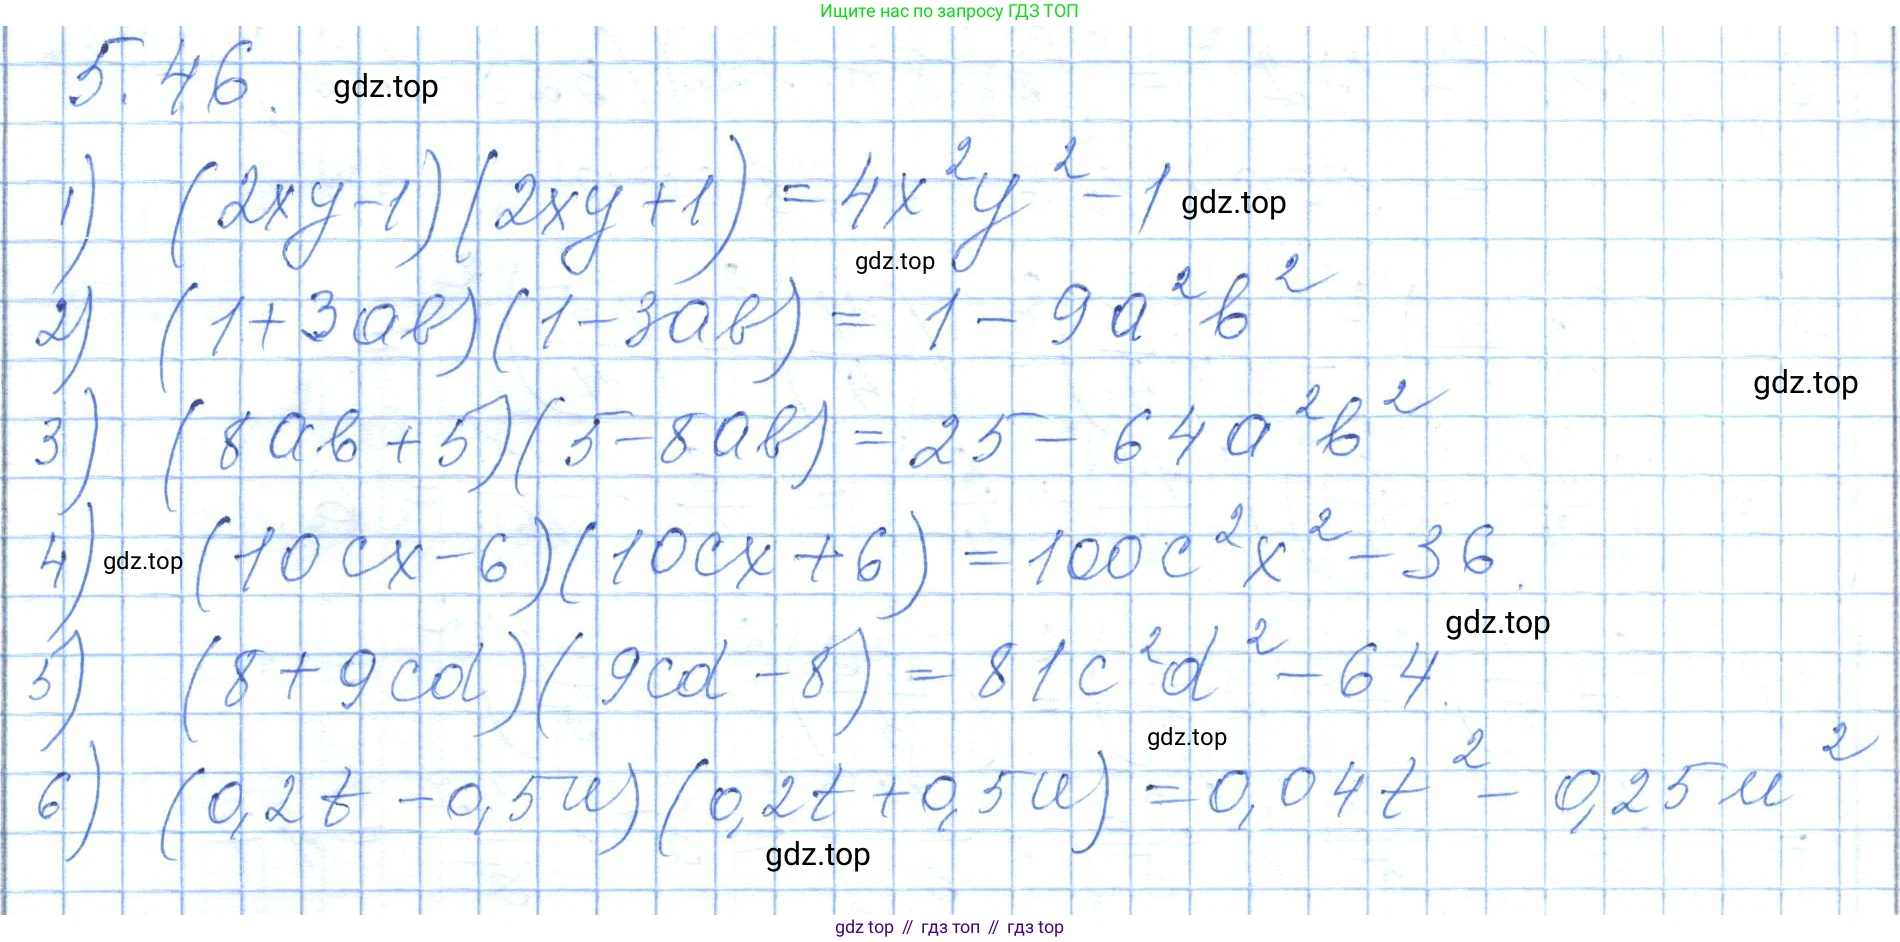 Ищите нас по запросу ГДЗ ТОП
5.46. gdz.top
1) (2xy-1)(2xy+1) = 4x²y² - 1 gdz.top
gdz.top
2) (1+3ab)(1-3ab) = 1 - 9a²b²
gdz.top
3) (8ab+5)(5-8ab) = 25 - 64a²b²
4) gdz.top (10cx-6)(10cx+6) = 100c²x² - 36.
gdz.top
5) (8+9cd)(9cd-8) = 81c²d² - 64.
gdz.top
6) (0,2t-0,5u)(0,2t+0,5u) = 0,04t² - 0,25u².
gdz.top
gdz top // гдз топ // гдз top